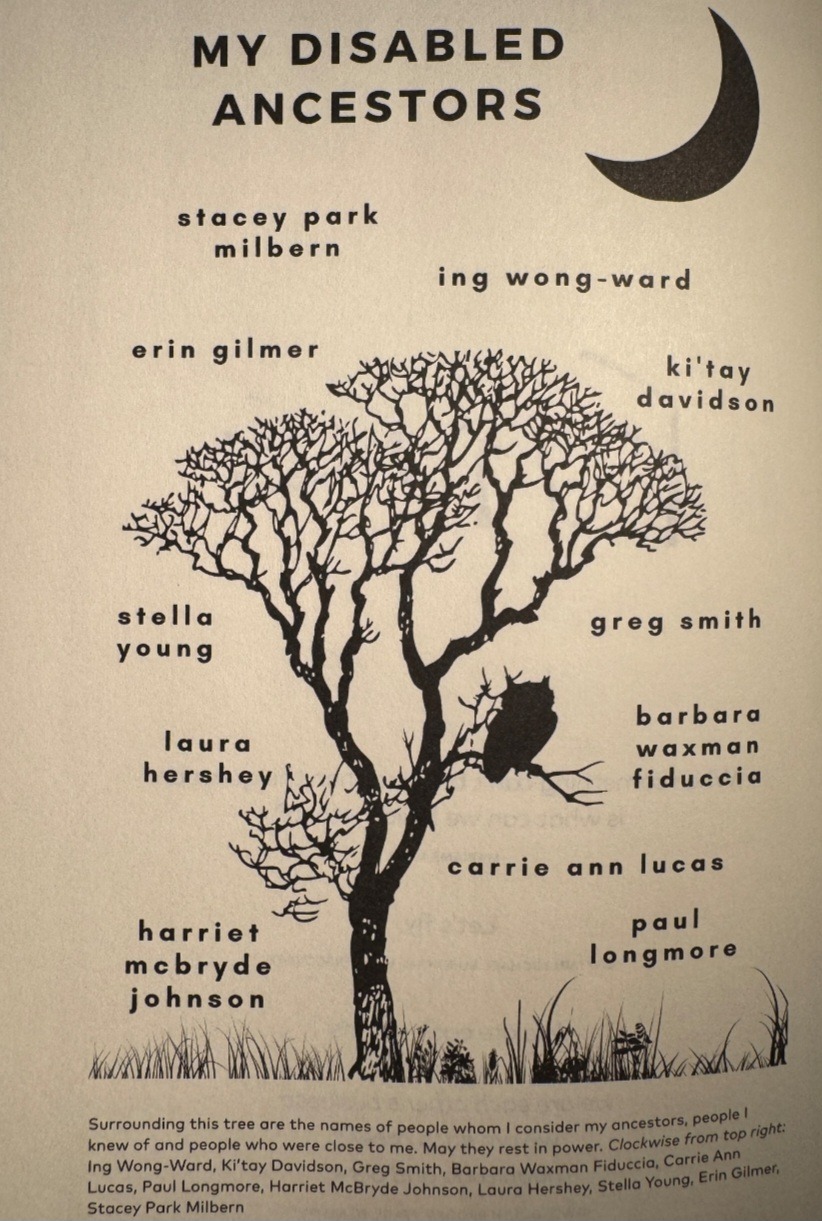 MY DISABLED
ANCESTORS
stacey park
milbern
ing wong-ward
erin gilmer
ki'tay
davidson
stella
young
greg smith
laura
hershey
barbara
waxman
fiduccia
carrie ann lucas
harriet
mcbryde
johnson
paul
longmore
Surrounding this tree are the names of people whom I consider my ancestors, people I
knew of and people who were close to me. May they rest in power. Clockwise from top right:
Ing Wong-Ward, Ki'tay Davidson, Greg Smith, Barbara Waxman Fiduccia, Carrie Ann
Lucas, Paul Longmore, Harriet McBryde Johnson, Laura Hershey, Stella Young, Erin Gilmer,
Stacey Park Milbern